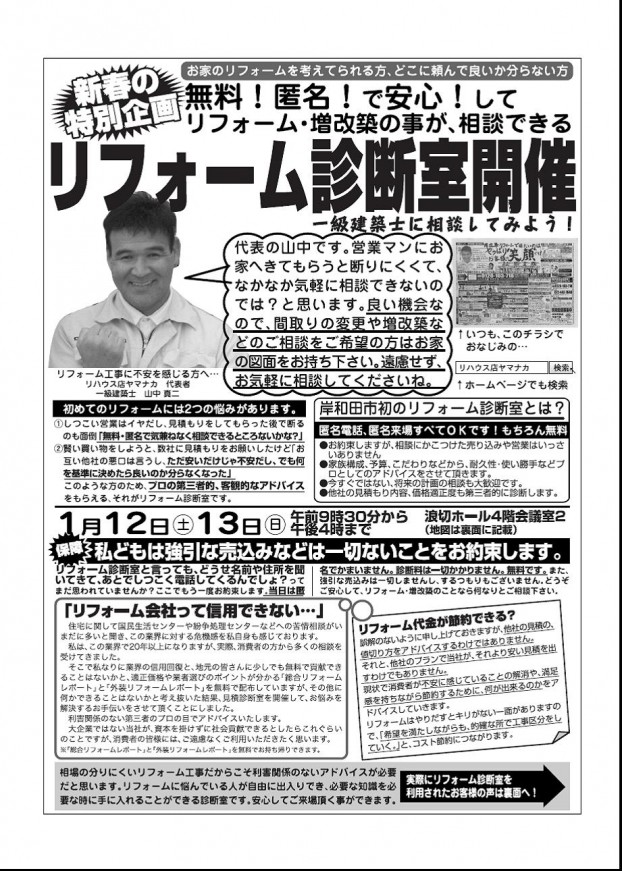 新春の
特別企画
お家のリフォームを考えてられる方、どこに頼んで良いか分らない方
無料!匿名!で安心!して
リフォーム・増改築の事が、相談できる
リフォーム診断室開催
一級建築士に相談してみよう!
代表の山中です。営業マンにお
家へきてもらうと断りにくくて、
なかなか気軽に相談できないの
では?と思います。良い機会な
ので、間取りの変更や増改築な
どのご相談をご希望の方はお家
の図面をお持ち下さい。遠慮せず、
お気軽に相談してくださいね。
笑顔
↑いつも、このチラシで
おなじみの…
リハウス店ヤマナカ 検索
↑ホームページでも検索
リフォーム工事に不安を感じる方へ…
リハウス店ヤマナカ 代表者
一級建築士 山中 貢二
初めてのリフォームには2つの悩みがあります。
①しつこい営業はイヤだし、見積もりをしてもらった後で断る
のも面倒「無料・匿名で気兼ねなく相談できるところないかな?」
②賢い買い物をしようと、数社に見積もりをお願いしたけど「お
互い他社の悪口は言うし、ただ安いだけじゃ不安だし、でも何
を基準に決めたら良いのか分らなくなった」
このような方のため、プロの第三者的、客観的なアドバイス
をもらえる、それがリフォーム診断室です。
岸和田市初のリフォーム診断室とは?
匿名電話、匿名来場すべてOKです!もちろん無料
●お約束しますが、相談にかこつけた売り込みや営業はいっさ
いありません
●家族構成、予算、こだわりなどから、耐久性・使い勝手などプ
ロとしてのアドバイスをさせて頂きます。
●今すぐではない、将来の計画の相談も大歓迎です。
●他社の見積もり内容、価格適正度も第三者的に診断します。
1月12日㊏13日㊐ 午前9時30分から
午後4時まで
浪切ホール4階会議室2
(地図は裏面に記載)
保障 私どもは強引な売込みなどは一切ないことをお約束します。
リフォーム診断室と言っても、どうせ名前や住所を聞
いてきて、あとでしつこく電話してくるんでしょ?って
まだ思われていませんか?ここでもう一度お約束します。当日は匿
名でかまいません。診断料は一切かかりません。無料です。また、
強引な売込みは一切しませんし、するつもりもございません。どうぞ
ご安心して、リフォーム・増改築のことなら何なりとご相談下さい。
「リフォーム会社って信用できない…」
住宅に関して国民生活センターや紛争処理センターなどへの苦情相談がい
まだに多いと聞き、この業界に対する危機感を私自身も感じております。
私は、この業界で20年以上になりますが、実際、消費者の方から多くの相談を
受けてきました。
そこで私なりに業界の信用回復と、地元の皆さんに少しでも無料で貢献でき
ることはないかと、適正価格や業者選びのポイントが分かる「総合リフォームレ
ポート」と「外装リフォームレポート」を無料で配布していますが、その他に
何かできることはないかと考え抜いた結果、見積診断室を開催して、お悩みを
解決するお手伝いをさせて頂くことにしました。
利害関係のない第三者のプロの目でアドバイスいたします。
大企業ではない当社が、資本を掛けずに社会貢献できるとしたらこれぐらい
のことですが、消費者の皆様には、ご遠慮なくご利用いただきたく思います。
※「総合リフォームレポート」と「外装リフォームレポート」を無料でお持ち帰りできます。
リフォーム代金が節約できる?
誤解のないように申し上げておきますが、他社の見積の、
値切り方をアドバイスするわけではありません。
それと、他社のプランで当社が、それより安い見積を出
すわけでもありません。
現状で消費者が不安に感じていることの解消や、満足
感を持ちながら節約するために、何が出来るのかをア
ドバイスしていきます。
リフォームはやりだすとキリがない一面がありますの
で、「希望を満たしながらも、的確な所で工事区分をし
ていく」と、コスト節約につながります。
相場の分りにくいリフォーム工事だからこそ利害関係のないアドバイスが必要
だと思います。リフォームに悩んでいる人が自由に出入りでき、必要な知識を必
要な時に手に入れることができる診断室です。安心してご来場頂く事ができます。
実際にリフォーム診断室を
利用されたお客様の声は裏面へ!